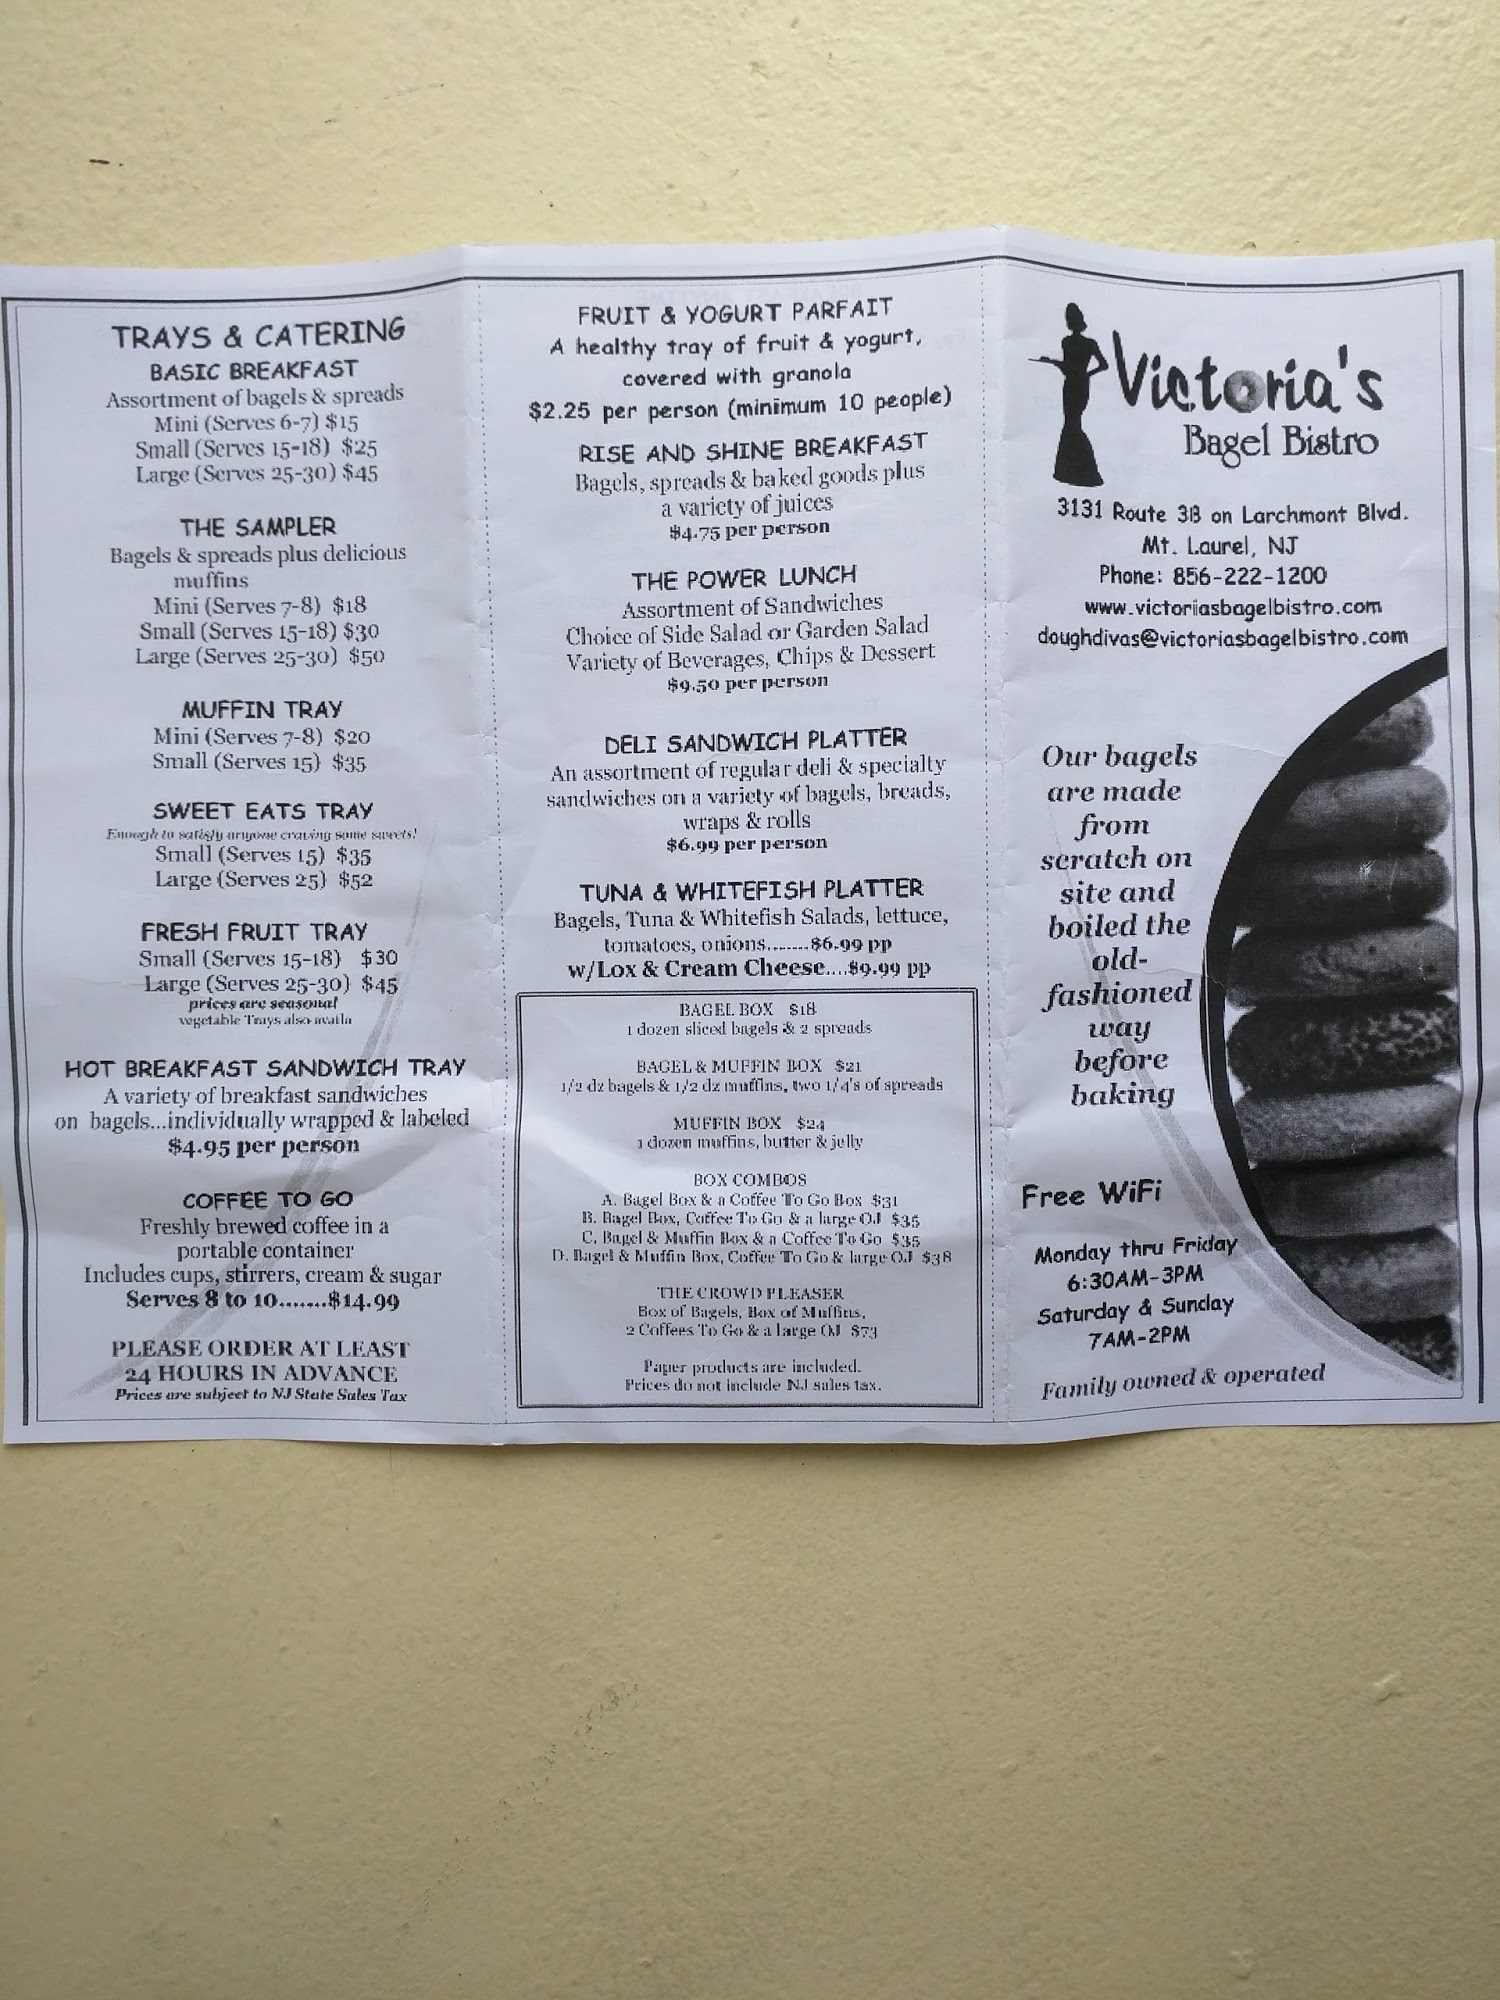 TRAYS & CATERING
BASIC BREAKFAST
Assortment of bagels & spreads
Mini (Serves 6-7) $15
Small (Serves 15-18) $25
Large (Serves 25-30) $45
THE SAMPLER
Bagels & spreads plus delicious
muffins
Mini (Serves 7-8) $18
Small (Serves 15-18) $30
Large (Serves 25-30) $50
MUFFIN TRAY
Mini (Serves 7-8) $20
Small (Serves 15) $35
SWEET EATS TRAY
Enough to satisfy anyone craving some sweets!
Small (Serves 15) $35
Large (Serves 25) $52
FRESH FRUIT TRAY
Small (Serves 15-18) $30
Large (Serves 25-30) $45
prices are seasonal
vegetable Trays also availa
HOT BREAKFAST SANDWICH TRAY
A variety of breakfast sandwiches
on bagels...individually wrapped & labeled
$4.95 per person
COFFEE TO GO
Freshly brewed coffee in a
portable container
Includes cups, stirrers, cream & sugar
Serves 8 to 10.......$14.99
PLEASE ORDER AT LEAST
24 HOURS IN ADVANCE
Prices are subject to NJ State Sales Tax
FRUIT & YOGURT PARFAIT
A healthy tray of fruit & yogurt,
covered with granola
$2.25 per person (minimum 10 people)
RISE AND SHINE BREAKFAST
Bagels, spreads & baked goods plus
a variety of juices
$4.75 per person
THE POWER LUNCH
Assortment of Sandwiches
Choice of Side Salad or Garden Salad
Variety of Beverages, Chips & Dessert
$9.50 per person
DELI SANDWICH PLATTER
An assortment of regular deli & specialty
sandwiches on a variety of bagels, breads,
wraps & rolls
$6.99 per person
TUNA & WHITEFISH PLATTER
Bagels, Tuna & Whitefish Salads, lettuce,
tomatoes, onions........$6.99 pp
w/Lox & Cream Cheese....$9.99 pp
BAGEL BOX $18
1 dozen sliced bagels & 2 spreads
BAGEL & MUFFIN BOX $21
1/2 dz bagels & 1/2 dz muffins, two 1/4's of spreads
MUFFIN BOX $24
1 dozen muffins, butter & jelly
BOX COMBOS
A. Bagel Box & a Coffee To Go Box $31
B. Bagel Box, Coffee To Go & a large OJ $35
C. Bagel & Muffin Box & a Coffee To Go $35
D. Bagel & Muffin Box, Coffee To Go & large OJ $38
THE CROWD PLEASER
Box of Bagels, Box of Muffins,
2 Coffees To Go & a large OJ $73
Paper products are included.
Prices do not include NJ sales tax.
Victoria's
Bagel Bistro
3131 Route 38 on Larchmont Blvd.
Mt. Laurel, NJ
Phone: 856-222-1200
www.victoriasbagelbistro.com
doughdivas@victoriasbagelbistro.com
Our bagels
are made
from
scratch on
site and
boiled the
old-
fashioned
way
before
baking
Free WiFi
Monday thru Friday
6:30AM-3PM
Saturday & Sunday
7AM-2PM
Family owned & operated